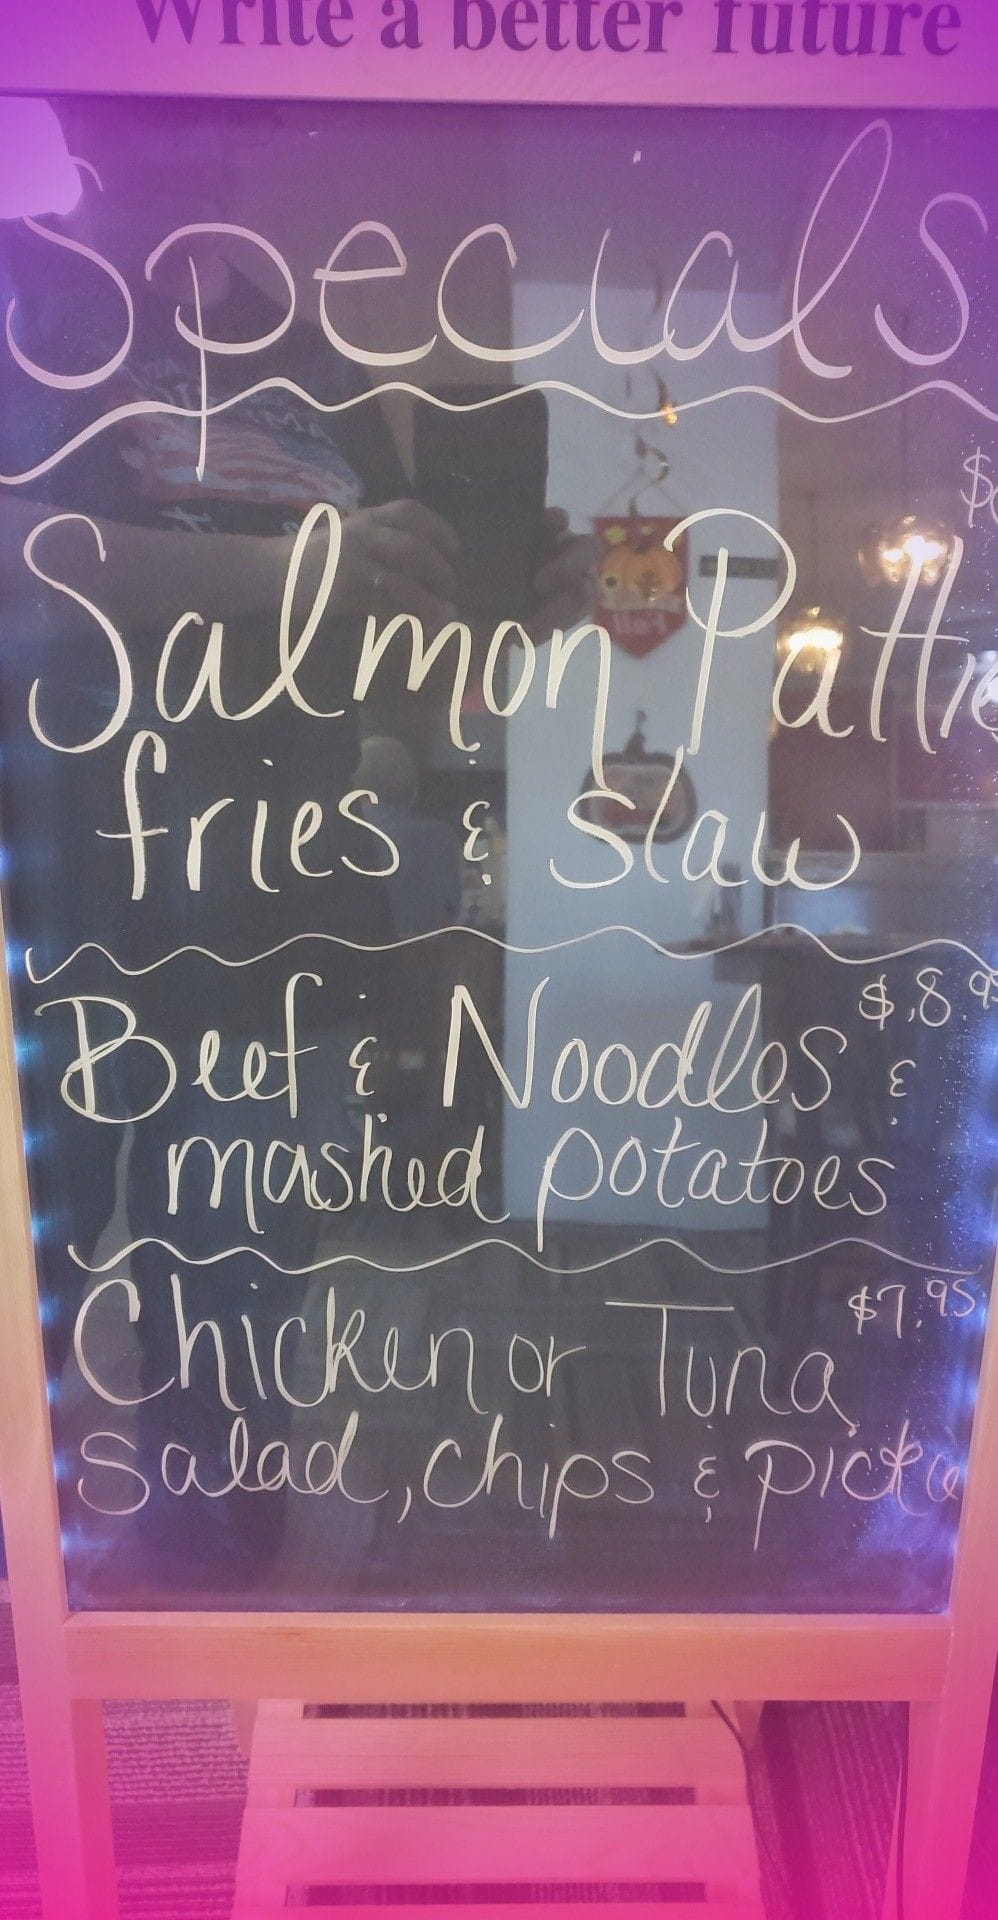 Write a better future
Specials
$
Salmon Pattie
fries & slaw
Beef & Noodles $8.95 &
mashed potatoes
Chicken or Tuna $7.95
Salad, chips & pickle
Fall